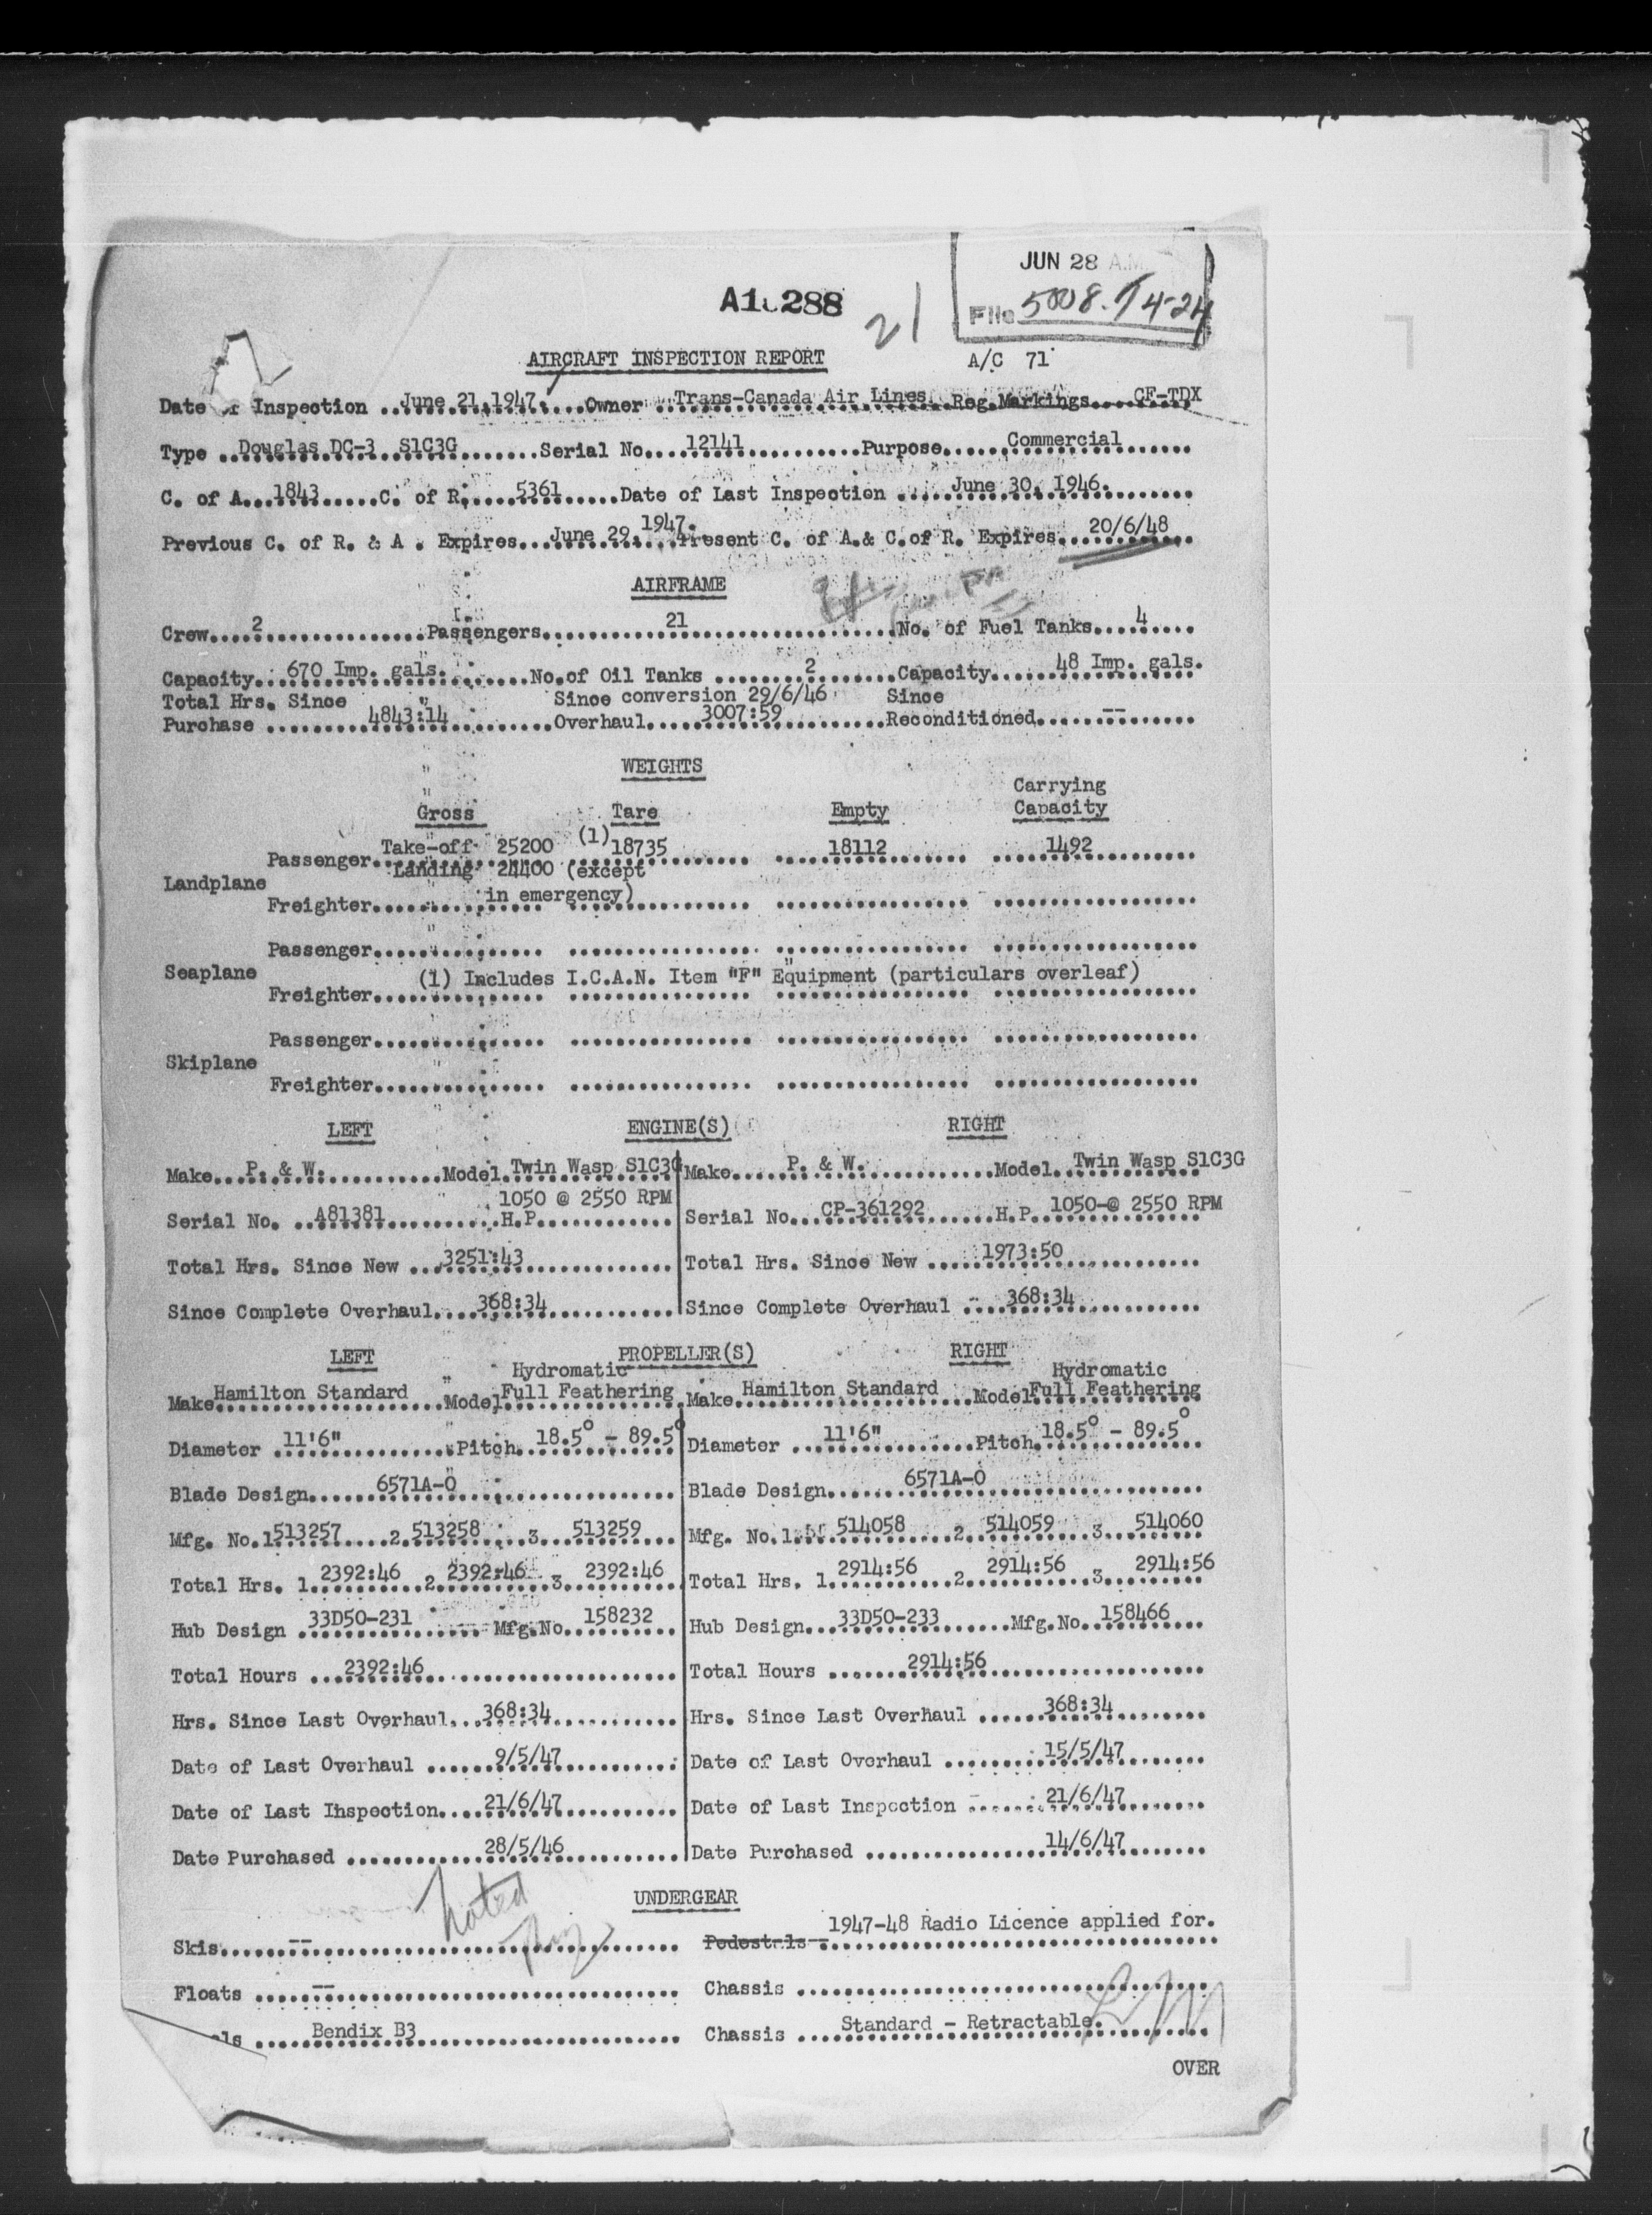 JUN 28 A.M.
A10288
21
File 5008-T4-24
AIRCRAFT INSPECTION REPORT
A/C 71
Date of Inspection ..June 21,1947.....Owner ..Trans-Canada Air Lines..Reg.Markings....CF-TDX
Type ..Douglas DC-3 S1C3G.......Serial No....12141...............Purpose......Commercial......
C. of A...1843.....C. of R.....5361.....Date of Last Inspection .....June 30, 1946.......
Previous C. of R. & A . Expires...June 29, 1947. Present C. of A.& C.of R. Expires...20/6/48...
AIRFRAME
Crew....2.................Passengers...........21....................No. of Fuel Tanks....4.....
Capacity...670 Imp. gals........No.of Oil Tanks .........2........Capacity.....48 Imp. gals.
Total Hrs. Since Since conversion 29/6/46 Since
Purchase .........4843:14.........Overhaul.....3007:59.........Reconditioned......--.......
WEIGHTS
Carrying
Gross Tare Empty Capacity
Passenger. Take-off 25200 (1) 18735 18112 1492
Landing 24400 (except
Landplane
Freighter.......... in emergency) ...............
Passenger...............
Seaplane (1) Includes I.C.A.N. Item "F" Equipment (particulars overleaf)
Freighter...............
Passenger...............
Skiplane
Freighter...............
LEFT ENGINE(S) RIGHT
Make...P. & W..........Model.Twin Wasp S1C3G Make.....P. & W..........Model..Twin Wasp S1C3G
1050 @ 2550 RPM
Serial No. ..A81381.........H.P............ Serial No...CP-361292......H.P..1050-@ 2550 RPM
Total Hrs. Since New ...3251:43............... Total Hrs. Since New .....1973:50............
Since Complete Overhaul....368:34............ Since Complete Overhaul ....368:34...........
LEFT PROPELLER(S) RIGHT
Hydromatic Hydromatic
Make Hamilton Standard Model Full Feathering Make Hamilton Standard Model Full Feathering
Diameter .11'6"............Pitch..18.5° - 89.5° Diameter ...11'6"..........Pitch.18.5° - 89.5°
Blade Design......6571A-0................. Blade Design.......6571A-0...............
Mfg. No.1 513257 2 513258 3 513259 Mfg. No.1 514058 2 514059 3 514060
Total Hrs. 1 2392:46 2 2392:46 3 2392:46 Total Hrs. 1 2914:56 2 2914:56 3 2914:56
Hub Design .33D50-231........ Mfg.No..158232.. Hub Design...33D50-233.......Mfg.No..158466...
Total Hours ...2392:46.................. Total Hours .......2914:56.................
Hrs. Since Last Overhaul...368:34............ Hrs. Since Last Overhaul ......368:34........
Date of Last Overhaul ......9/5/47.......... Date of Last Overhaul .........15/5/47.......
Date of Last Inspection....21/6/47.......... Date of Last Inspection .......21/6/47.......
Date Purchased ............28/5/46.......... Date Purchased ...............14/6/47.......
noted
UNDERGEAR
1947-48 Radio Licence applied for.
Skis.......--.......................... Pedestals...............
Floats .....--......................... Chassis ...............
els .....Bendix B3................... Chassis ....Standard - Retractable.......
OVER